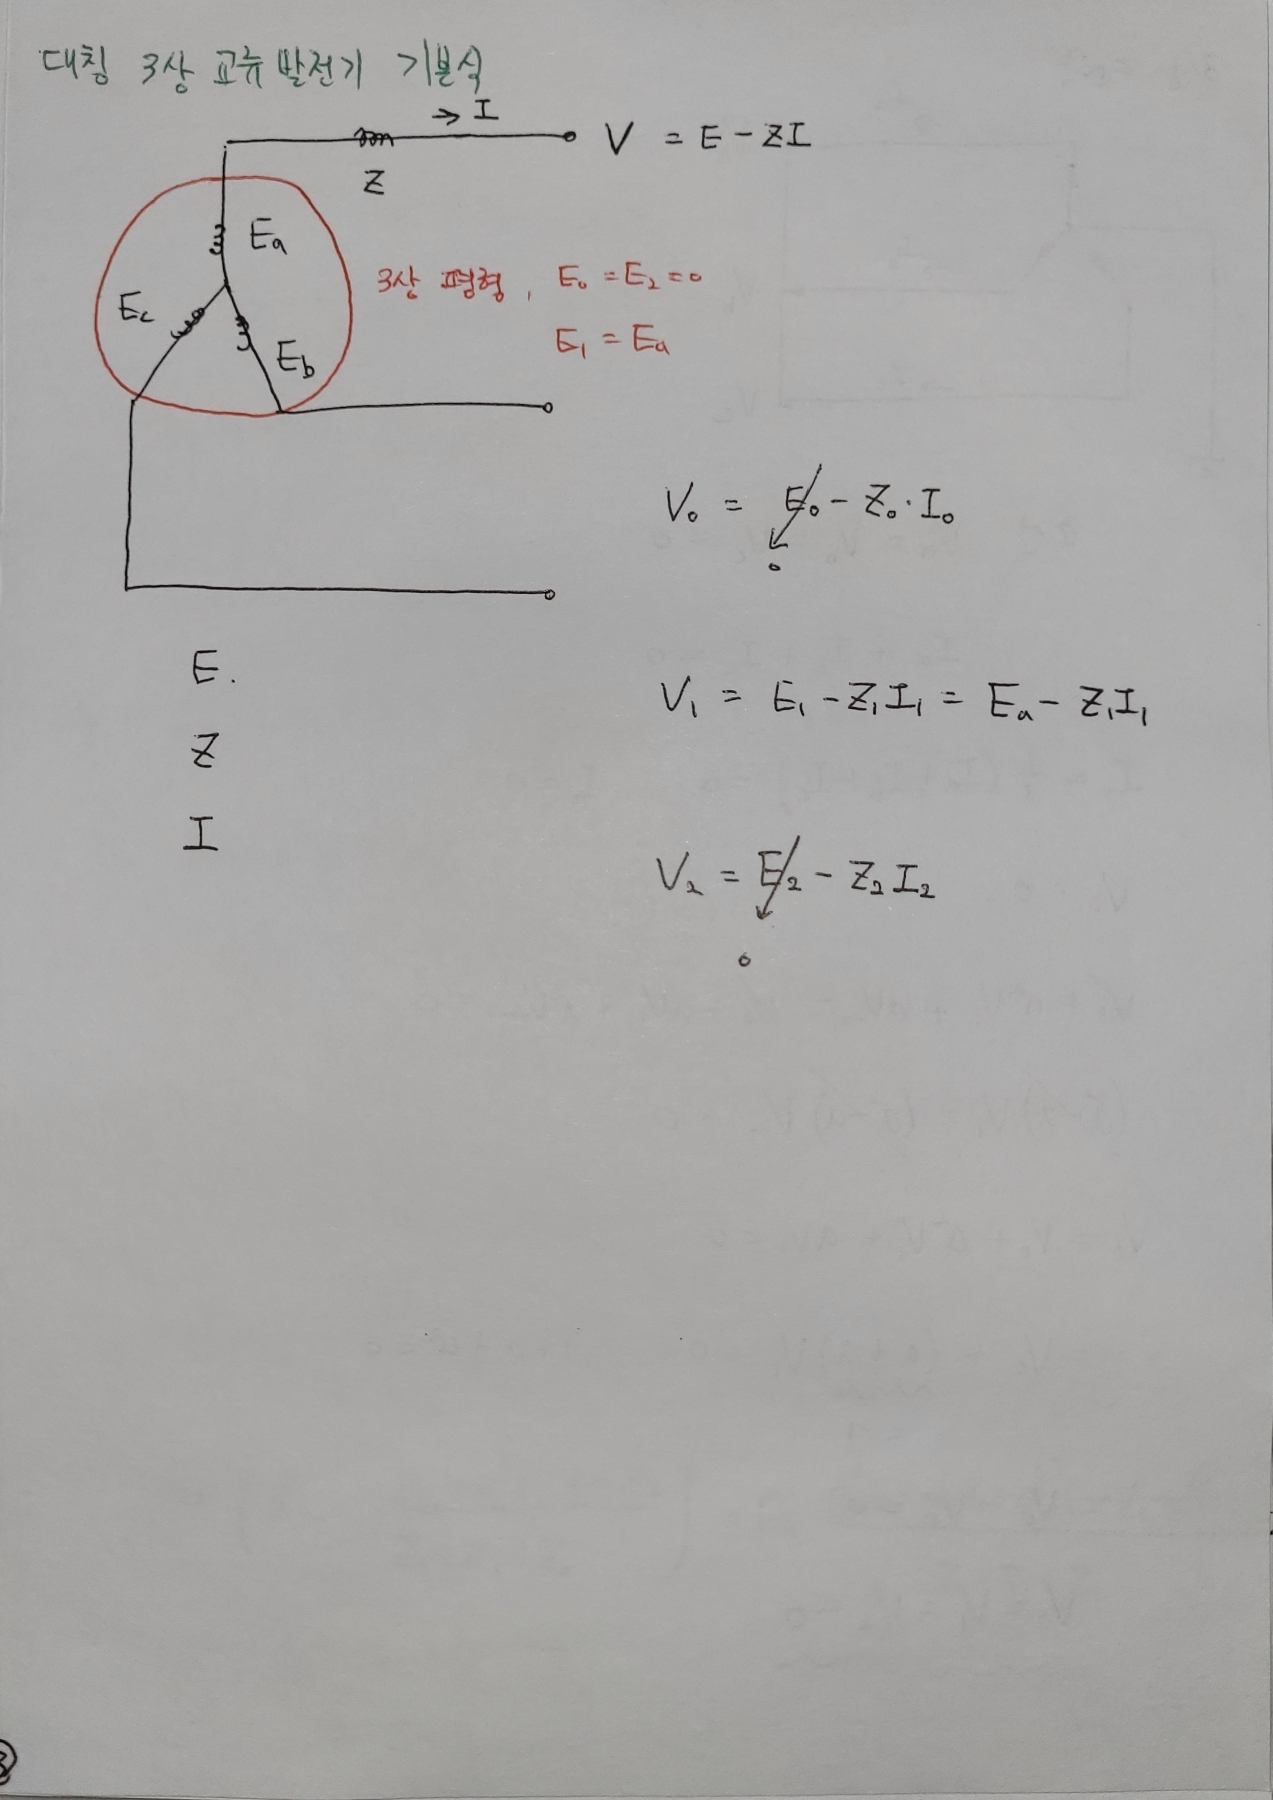 대칭 3상 교류 발전기 기본식
→ I
V = E - ZI
Z
Ea
Ec
Eb
3상 평형, E₀ = E₂ = 0
E₁ = Ea
V₀ = E₀ - Z₀·I₀
0
E.
Z
I
V₁ = E₁ - Z₁I₁ = Ea - Z₁I₁
V₂ = E₂ - Z₂I₂
0